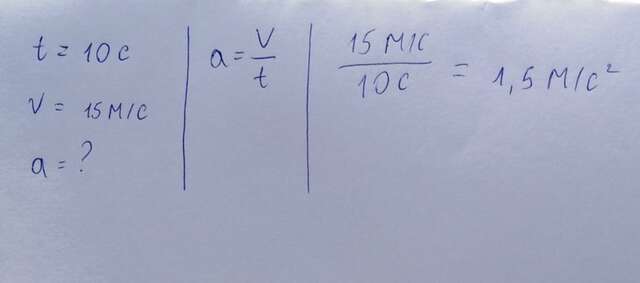 t = 10 с
v = 15 м/с
a = ?
a = v/t
15 м/с / 10 с = 1,5 м/с²